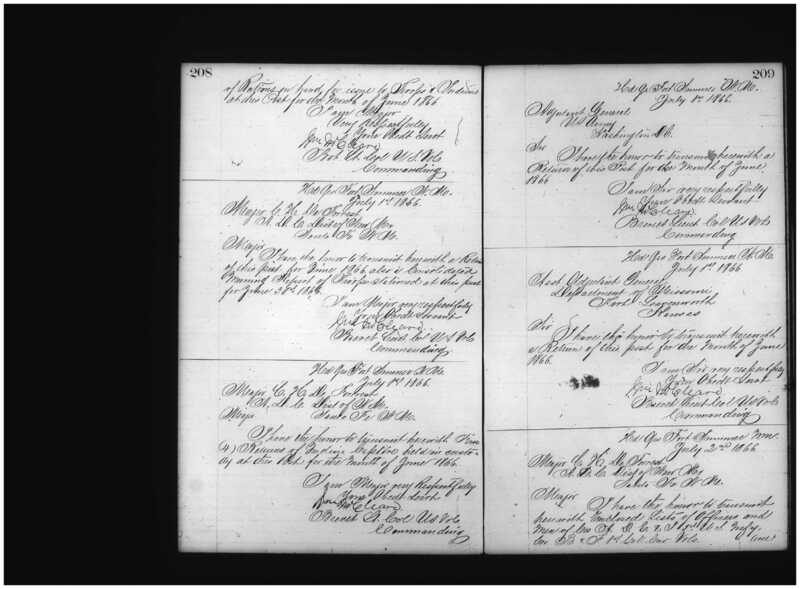 208
of Rations on hand for issue to Troops & Indians
at this Post for the Month of June 1866
I am Major
Very Respectfully
Your Obedt Servt
Lieut Col U S Vols
Commanding
Hd Qrs Fort Sumner N. M.
July 1st 1866
Major C. H. De Forrest
A. D. C. Dist of New Mex
Santa Fe N. M.
Major
I have the honor to transmit herewith a Return
of this post for June 1866 also a Consolidated
Report of Troops stationed at this post
for June 30th 1866
I am Major very respectfully
Your Obedt Servant
Brevet Lieut Col U S Vols
Commanding
Hd Qrs Fort Sumner N. M.
July 1st 1866
Major C. H. De Forrest
A. D. C. Dist of N. M.
Major Santa Fe N. M.
I have the honor to transmit herewith Four
(4) Returns of Indian Captive held in custo-
dy at this Post for the Month of June 1866.
I am Major very Respectfully
Your Obedt Servt
Brevet Lt Col U S Vols
Commanding
209
Hd Qrs Fort Sumner N. M.
July 1st 1866
Adjutant General
U S Army
Washington D. C.
Sir
I have the honor to transmit herewith a
Return of this Post for the Month of June
1866
I am Sir very respectfully
Your Obedt Servant
Brevet Lieut Col U S Vols
Commanding
Hd Qrs Fort Sumner N. M.
July 1st 1866
Asst Adjutant General
Department of Missouri
Fort Leavenworth
Kansas
Sir
I have the honor to transmit herewith
a Return of this post for the Month of June
1866.
I am Sir very respectfully
Your Obedt Servt
Brevet Lieut Col U S Vols
Commanding
Hd Qrs Fort Sumner N. M.
July 2nd 1866
Major C. H. De Forrest
A. D. C. Dist of New Mex
Santa Fe N. M.
Major
I have the honor to transmit
herewith Enclosed Lists of Officers and
Men of Cos
Cos B & F 1st Cal. Cav Vols. and